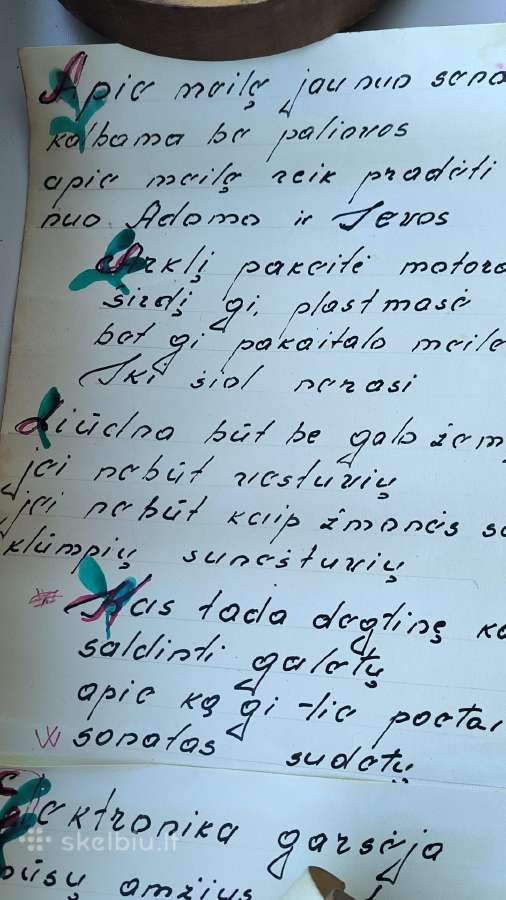 Apie meilę jau nuo seno
kalbama be paliovos
apie meilę reik pradėti
nuo Adomo ir Ievos
Arklį pakeitė motora
širdį gi, plastmasė
bet gi pakaitalo meile
Iki šiol nerasi
Liūdna būt be galo žem
jei nebūt riestuvių
jei nebūt kaip žmonės sa
klumpių suneštuvių
Kas tada degtinę ka
saldinti galėtų
apie ką gi-tie poetai
sonatas sudėtų
Elektronika garsėja
mūsų amžius
skelbiu.lt